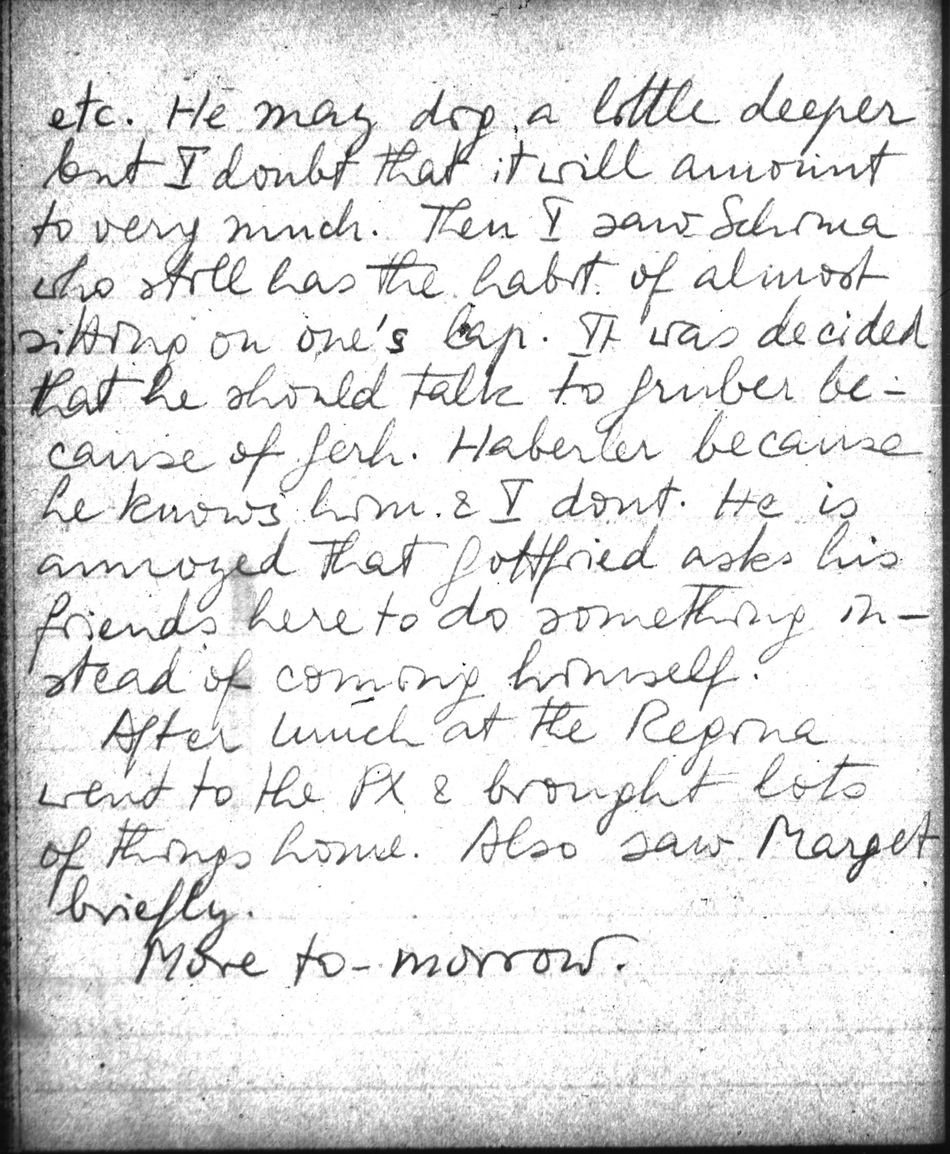 etc. He may dig a little deeper
but I doubt that it will amount
to very much. Then I saw Schima
who still has the habit of almost
sitting on one's lap. It was decided
that he should talk to Gruber be-
cause of Gerh. Haberler because
he knows him & I dont. He is
annoyed that Gottfried asks his
friends here to do something in-
stead of coming himself.
After lunch at the Regina
went to the PX & brought lots
of things home. Also saw Marget
briefly.
More to-morrow.